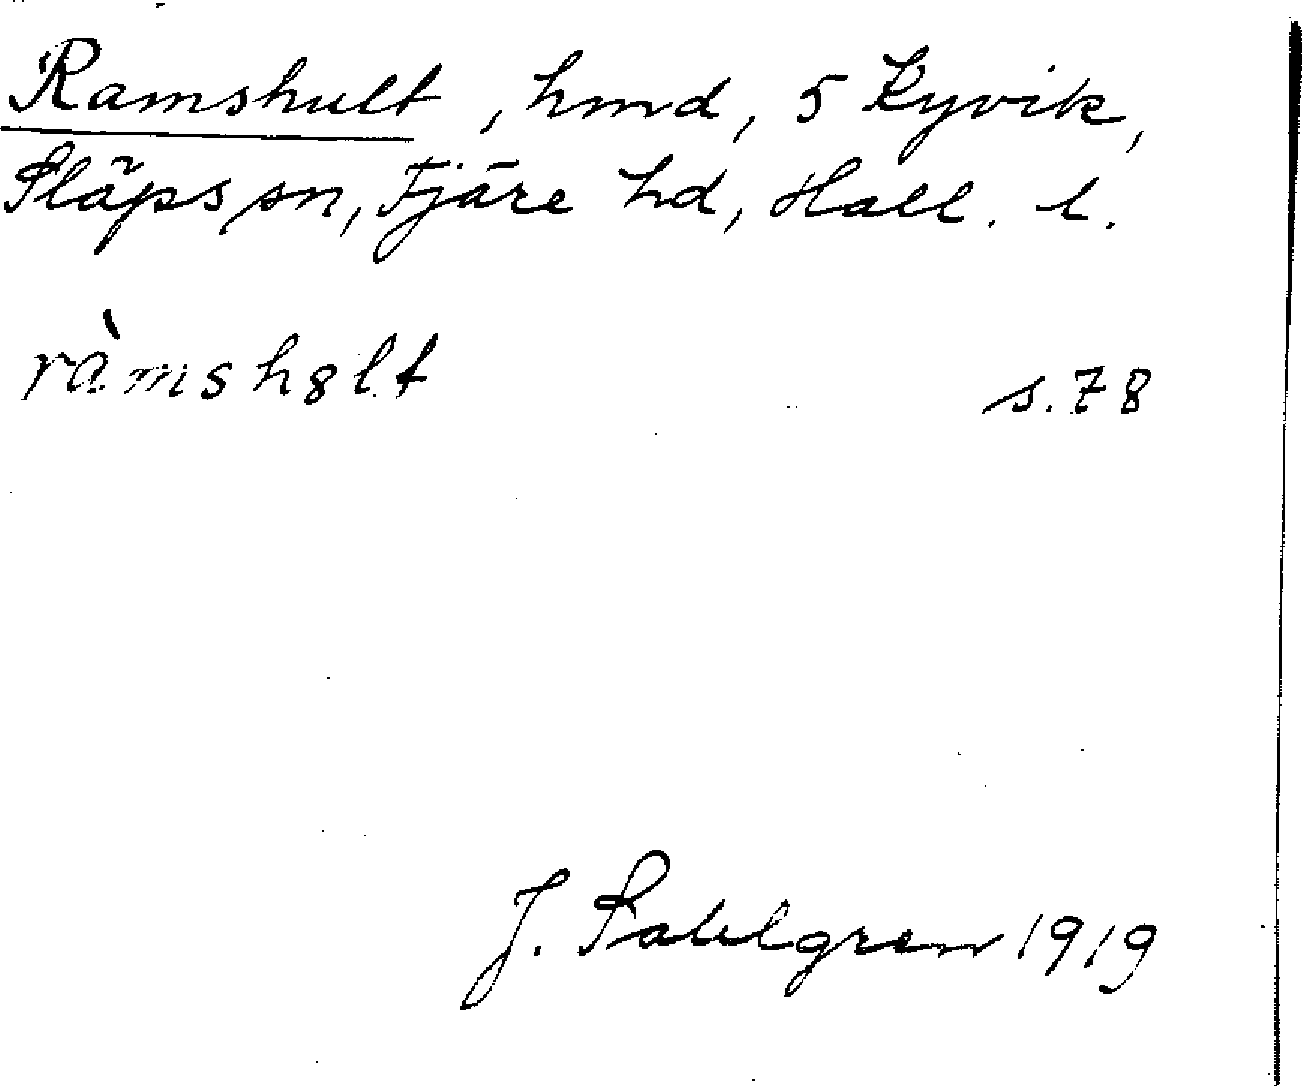 Ramshult, hmd, 5 Kyvik,
Släps sn, Fjäre hd, Hall. l.
ràmshølt s. 78
J. Sahlgren 1919